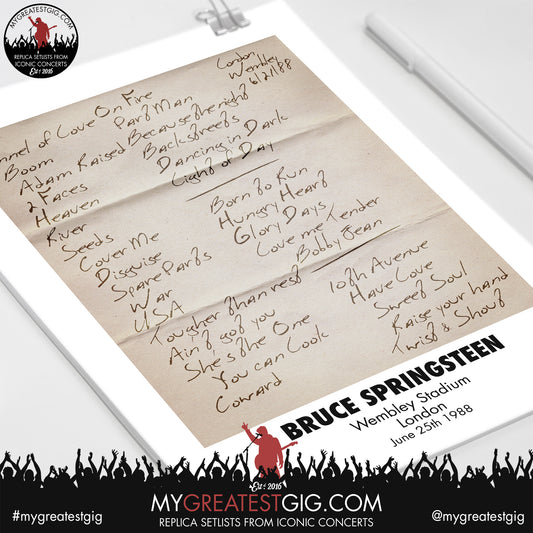 MYGREATESTGIG.COM
REPLICA SETLISTS FROM
ICONIC CONCERTS
Est 2016
London
Wembley
nnel of Love
Boom
Adam Raised
2 Faces
Heaven
River
Seeds
Cover Me
Disguise
Spare Parts
War
USA
Tougher than rest
Ain't got you
She's the One
You can Look
Coward
On Fire
Part Man
Because the night
Backstreets
Dancing in Dark
Light of Day
Born to Run
Hungry Heart
Glory Days
Love me Tender
Bobby Jean
10th Avenue
Have Love
Sweet Soul
Raise your hand
Twist & Shout
BRUCE SPRINGSTEEN
Wembley Stadium
London
June 25th 1988
Est 2016
MYGREATESTGIG.COM
REPLICA SETLISTS FROM ICONIC CONCERTS
#mygreatestgig
@mygreatestgig